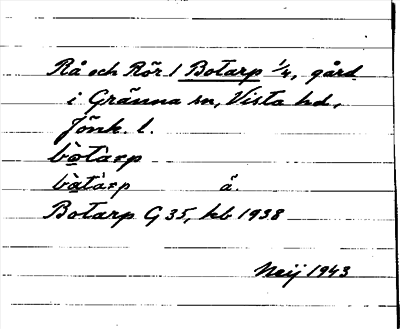 Rå och Rör 1 Botarp 1/4, gård
i Gränna sn, Vista hd,
Jönk. l.
bo̱tàrp
bàtàrp å.
Botarp G 35, kb 1938
Neij 1943